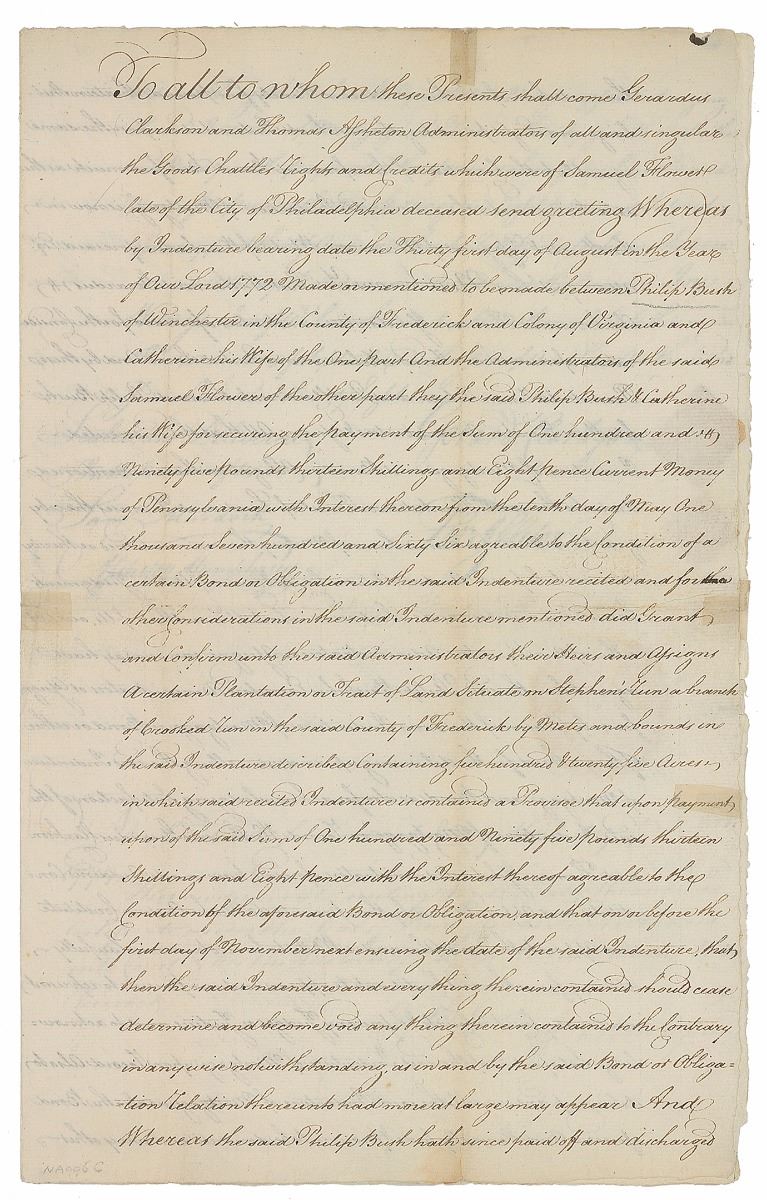 To all to whom these Presents shall come Gerardus
Clarkson and Thomas Assheton Administrators of all and singular
the Goods Chattles Rights and Credits which were of Samuel Flower
late of the City of Philadelphia deceased send greeting Whereas
by Indenture bearing date the Thirty first day of August in the Year
of Our Lord 1772 Made or mentioned to be made between Philip Bush
of Winchester in the County of Frederick and Colony of Virginia and
Catherine his Wife of the One part And the Administrators of the said
Samuel Flower of the other part they the said Philip Bush & Catherine
his Wife for securing the payment of the Sum of One hundred and
Ninety five pounds thirteen Shillings and Eight pence Current Money
of Pennsylvania with Interest thereon from the tenth day of May One
thousand Seven hundred and Sixty Six agreable to the Condition of a
certain Bond or Obligation in the said Indenture recited and for
other Considerations in the said Indenture mentioned did Grant
and Confirm unto the said Administrators their Heirs and Assigns
A certain Plantation or Trait of Land Situate on Stephen's Run a branch
of Crooked Run in the said County of Frederick by Metes and bounds in
the said Indenture described Containing five hundred & twenty five Acres
in which said recited Indenture is contained a Provisoe that upon payment
upon of the said Sum of One hundred and Ninety five pounds thirteen
Shillings and Eight pence with the Interest thereof agreable to the
Condition of the aforesaid Bond or Obligation, and that on or before the
first day of November next ensuing the date of the said Indenture, that
then the said Indenture and every thing therein contained should cease
determine and become void any thing therein contained to the Contrary
in any wise notwithstanding, as in and by the said Bond or Obliga=
=tion Relation thereunto had more at large may appear And
Whereas the said Philip Bush hath since paid off and discharged